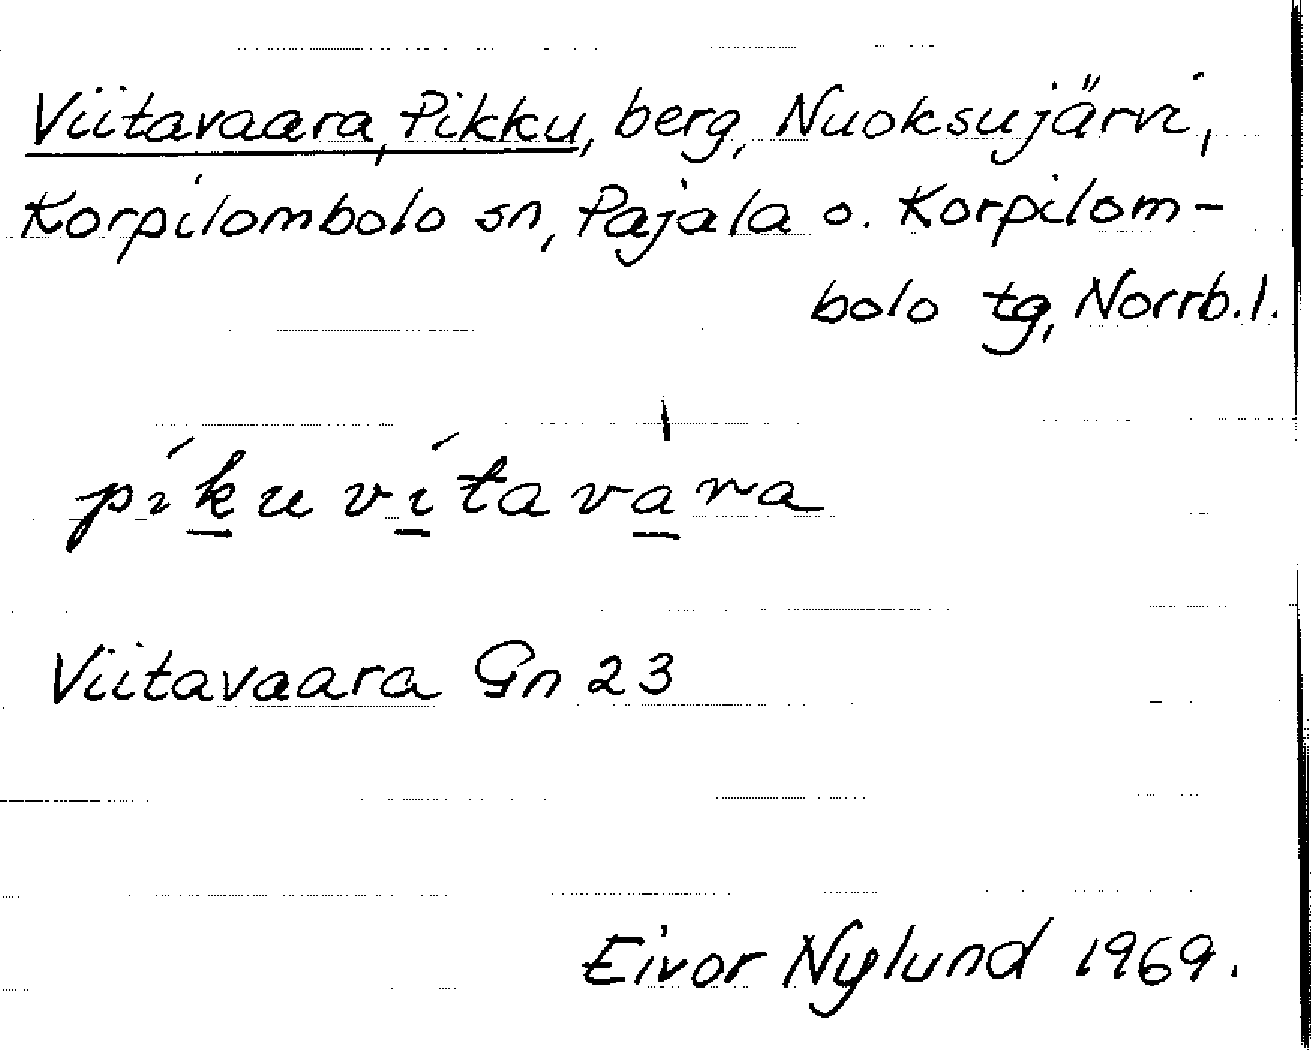 Viitavaara, Pikku, berg, Nuoksujärvi,
Korpilombolo sn, Pajala o. Korpilom-
bolo tg, Norrb.l.
píku vítavàra
Viitavaara Gn 23
Eivor Nylund 1969.